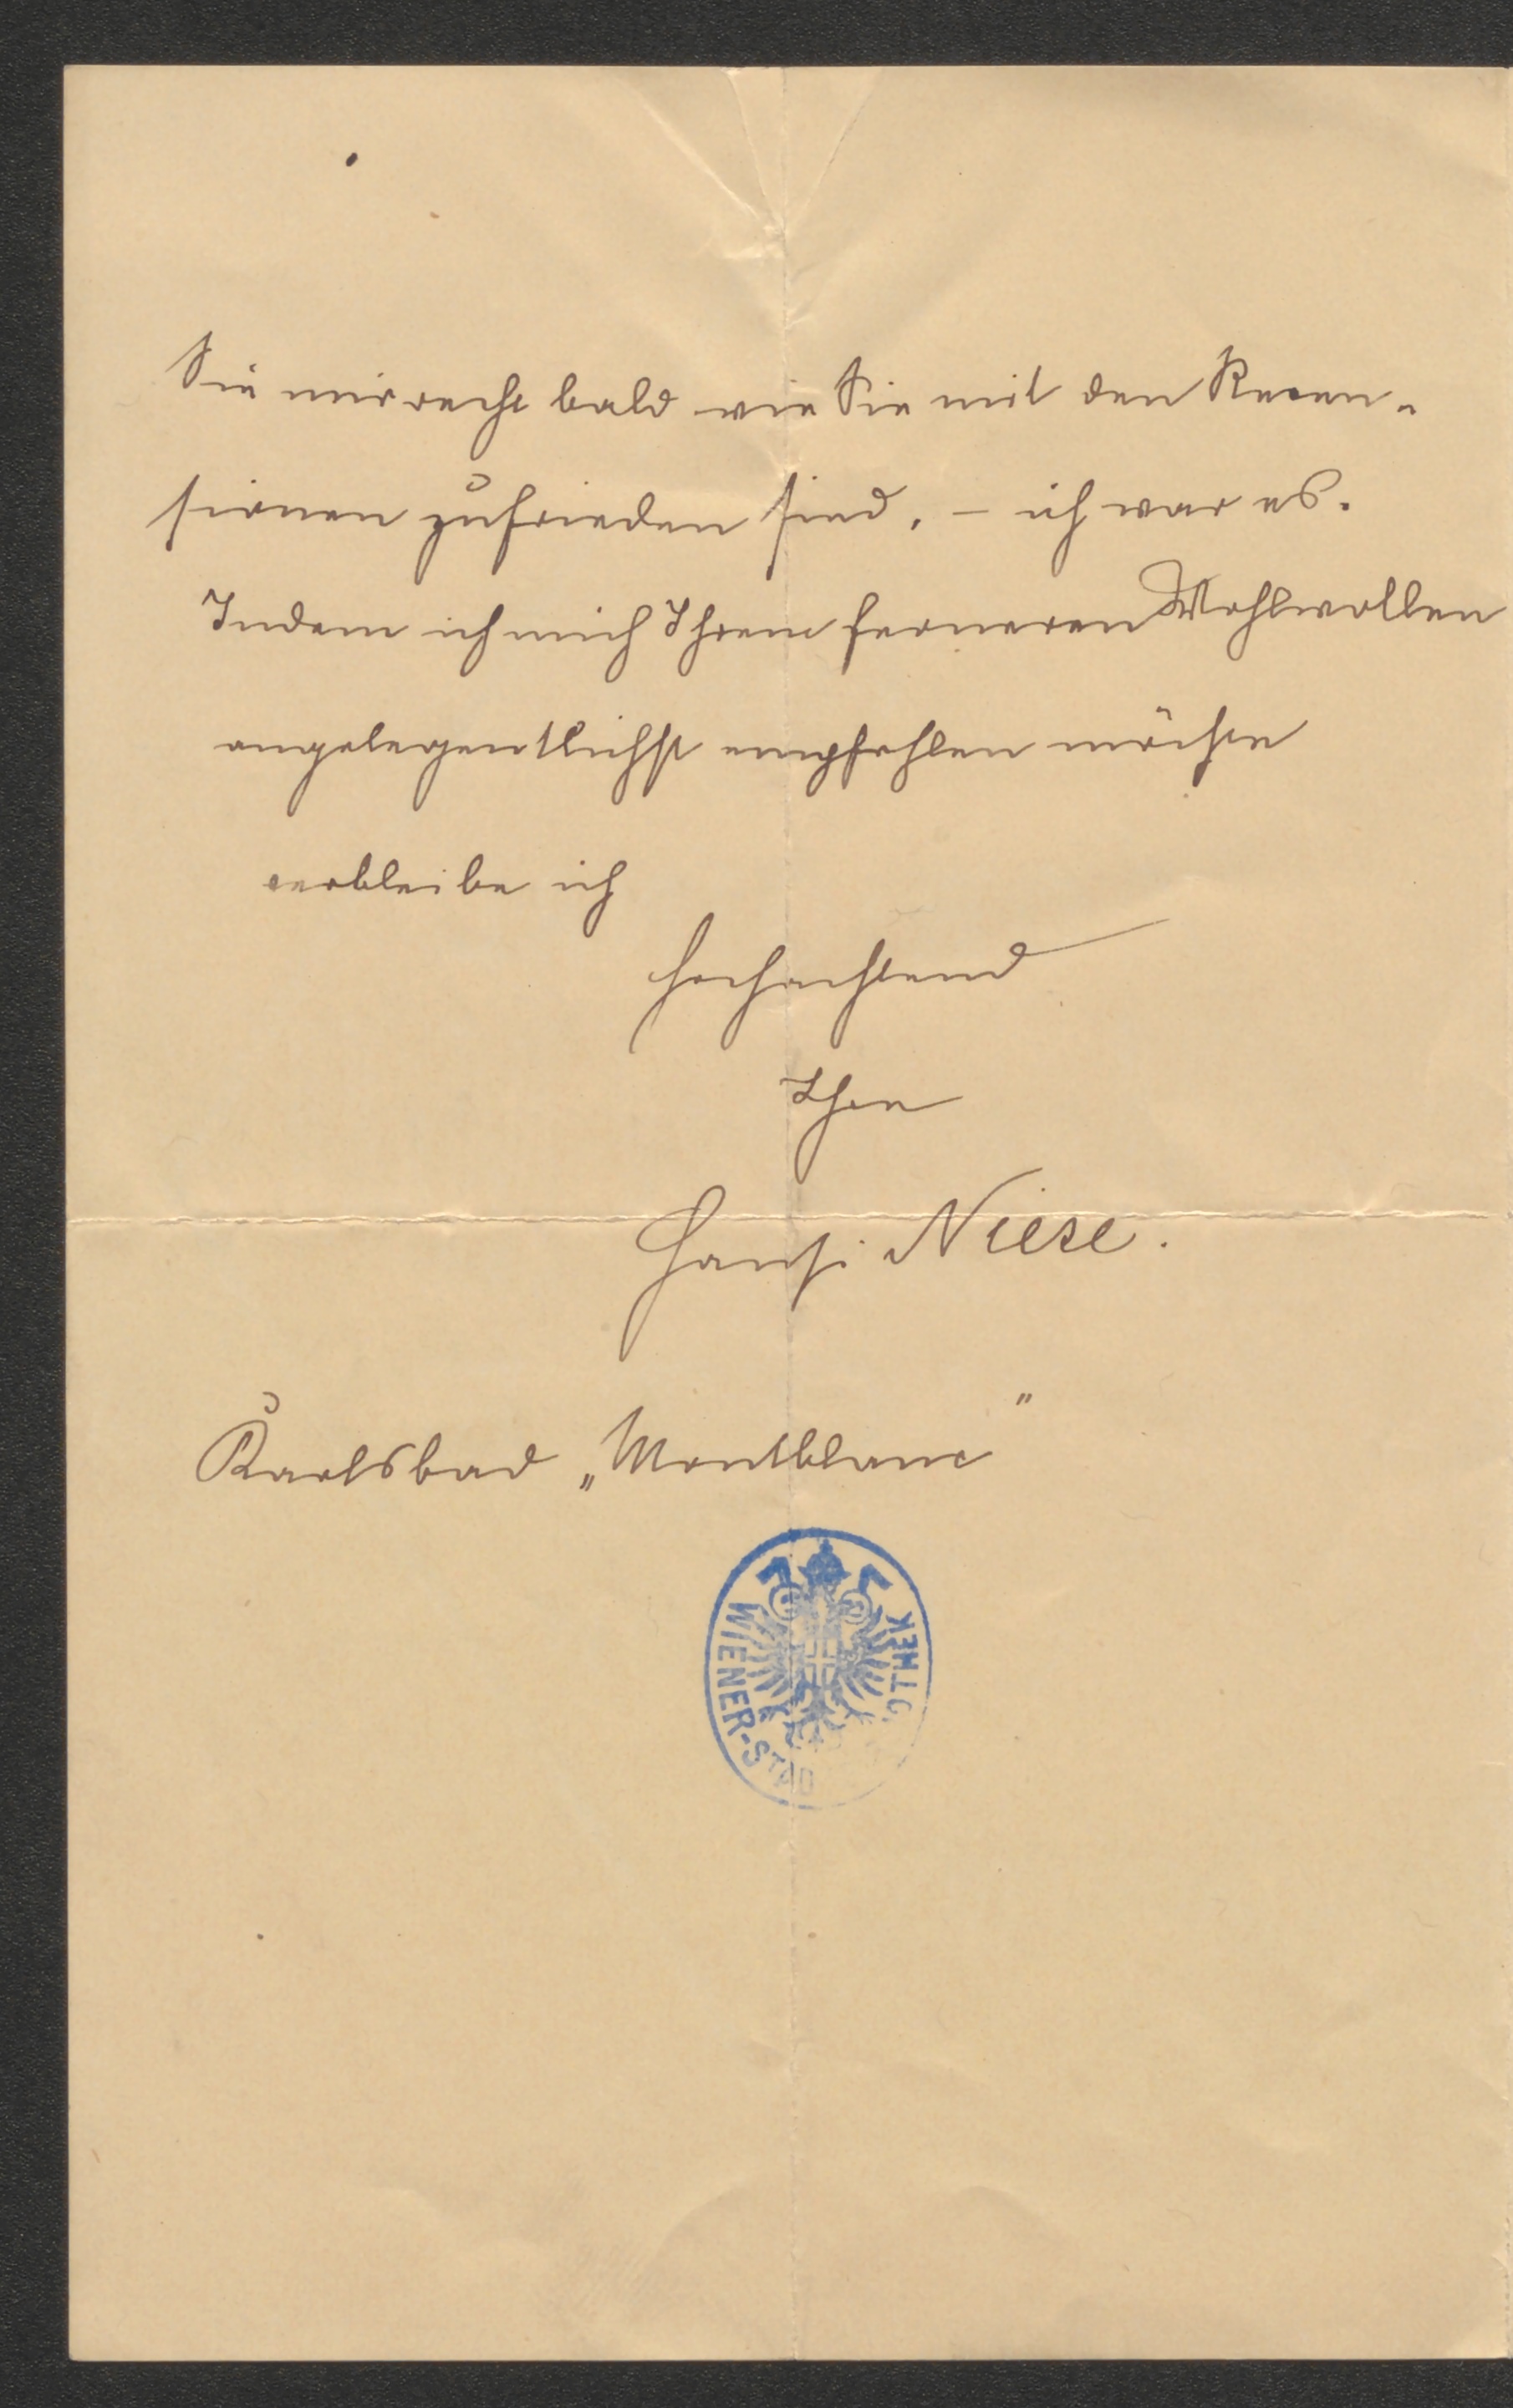 Sie mir recht bald wie Sie mit den Recen-
sionen zufrieden sind, – ich war es.
Indem ich mich Ihrem ferneren Wohlwollen
angelegentlichst empfehlen möchte
verbleibe ich
hochachtend
Ihre
Hansi Niese.
Karlsbad „Montblanc"
WIENER-STAD OTHEK